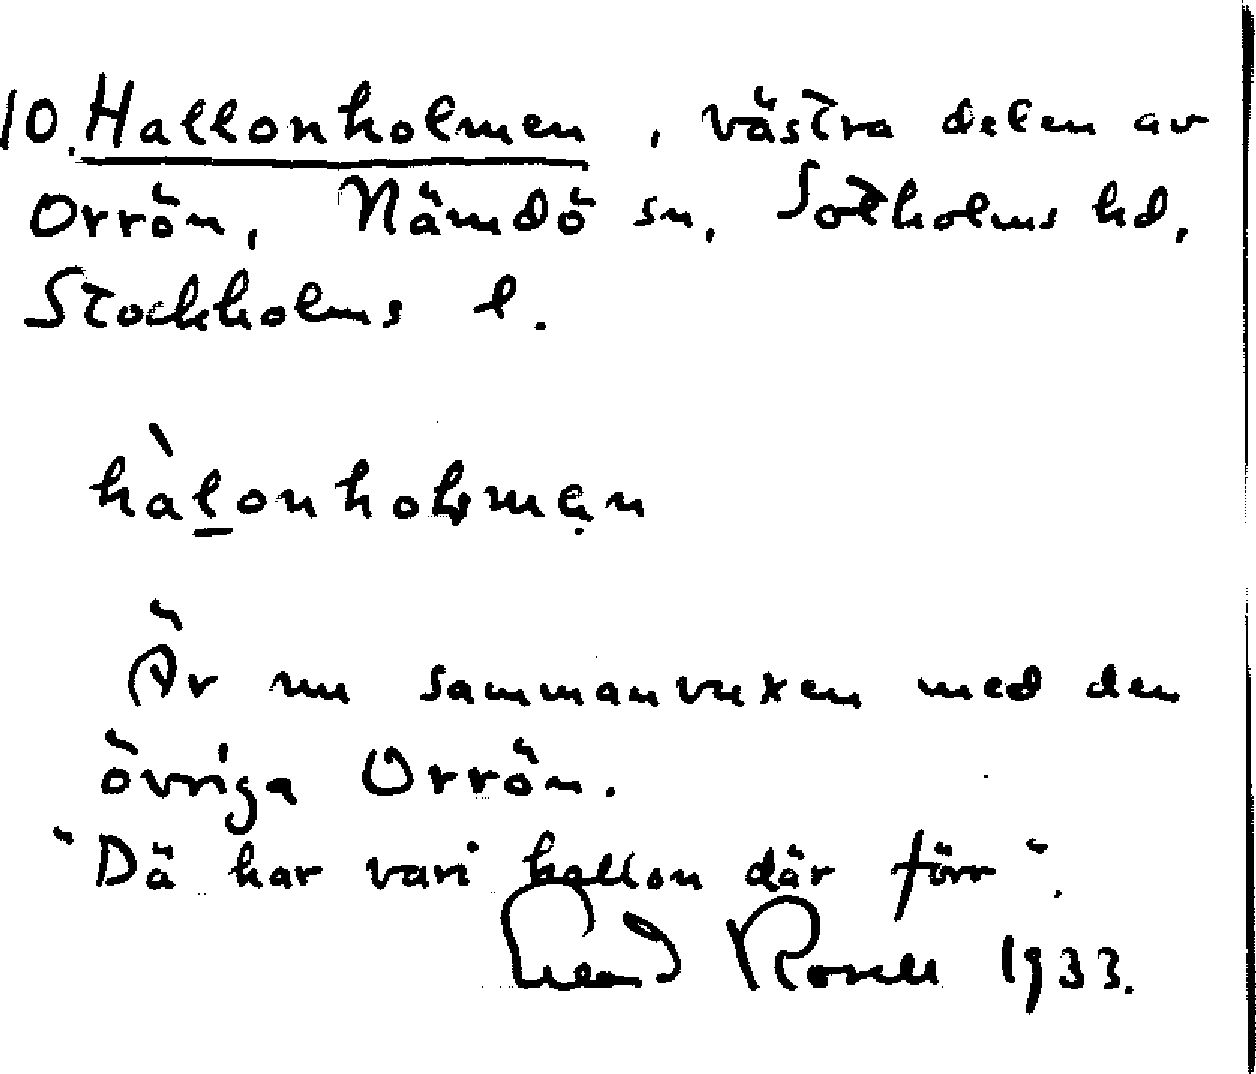 10. Hallonholmen, västra delen av
Orrön, Nämdö sn, Sotholms hd,
Stockholms l.
hàlonholmen
Är nu sammanvuxen med den
övriga Orrön.
"Dä har vari hallon där förr".
1933.